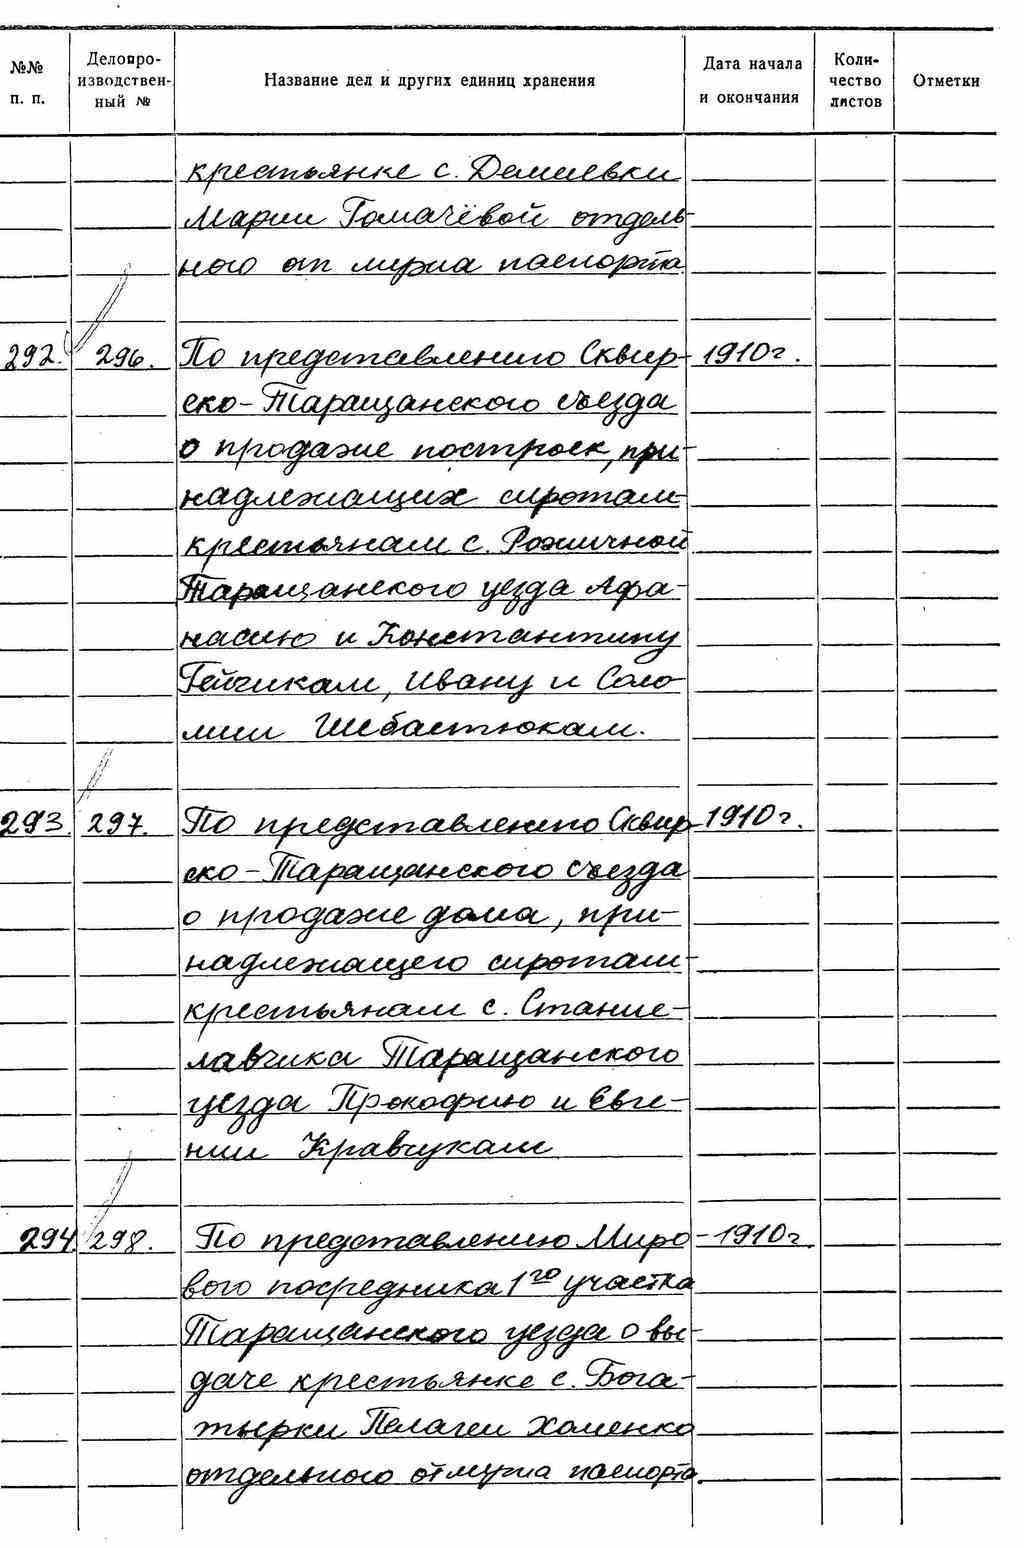 №№ п. п. Делопроизводственный № Название дел и других единиц хранения Дата начала и окончания Количество листов Отметки
крестьянке с. Демиевки
Марии Томачёвой отдель-
ного от мужа паспорта
292. 296. По представлению Сквир- 1910 г.
ско-Таращанского съезда
о продаже построек, при-
надлежащих сиротам-
крестьянам с. Розкичной
Таращанского уезда Афа-
насию и Константину
Гейчикам, Ивану и Соло-
мии Шебастюкам.
293. 297. По представлению Сквир- 1910 г.
ско-Таращанского съезда
о продаже дома, при-
надлежащего сиротам-
крестьянам с. Станис-
лавчика Таращанского
уезда Прокофию и Евге-
нии Кравчукам
294. 298. По представлению Миро- 1910 г.
вого посредника 1го участка
Таращанского уезда о вы-
даче крестьянке с. Бога-
тырки Пелагеи Хоменко
отдельного от мужа паспорта.